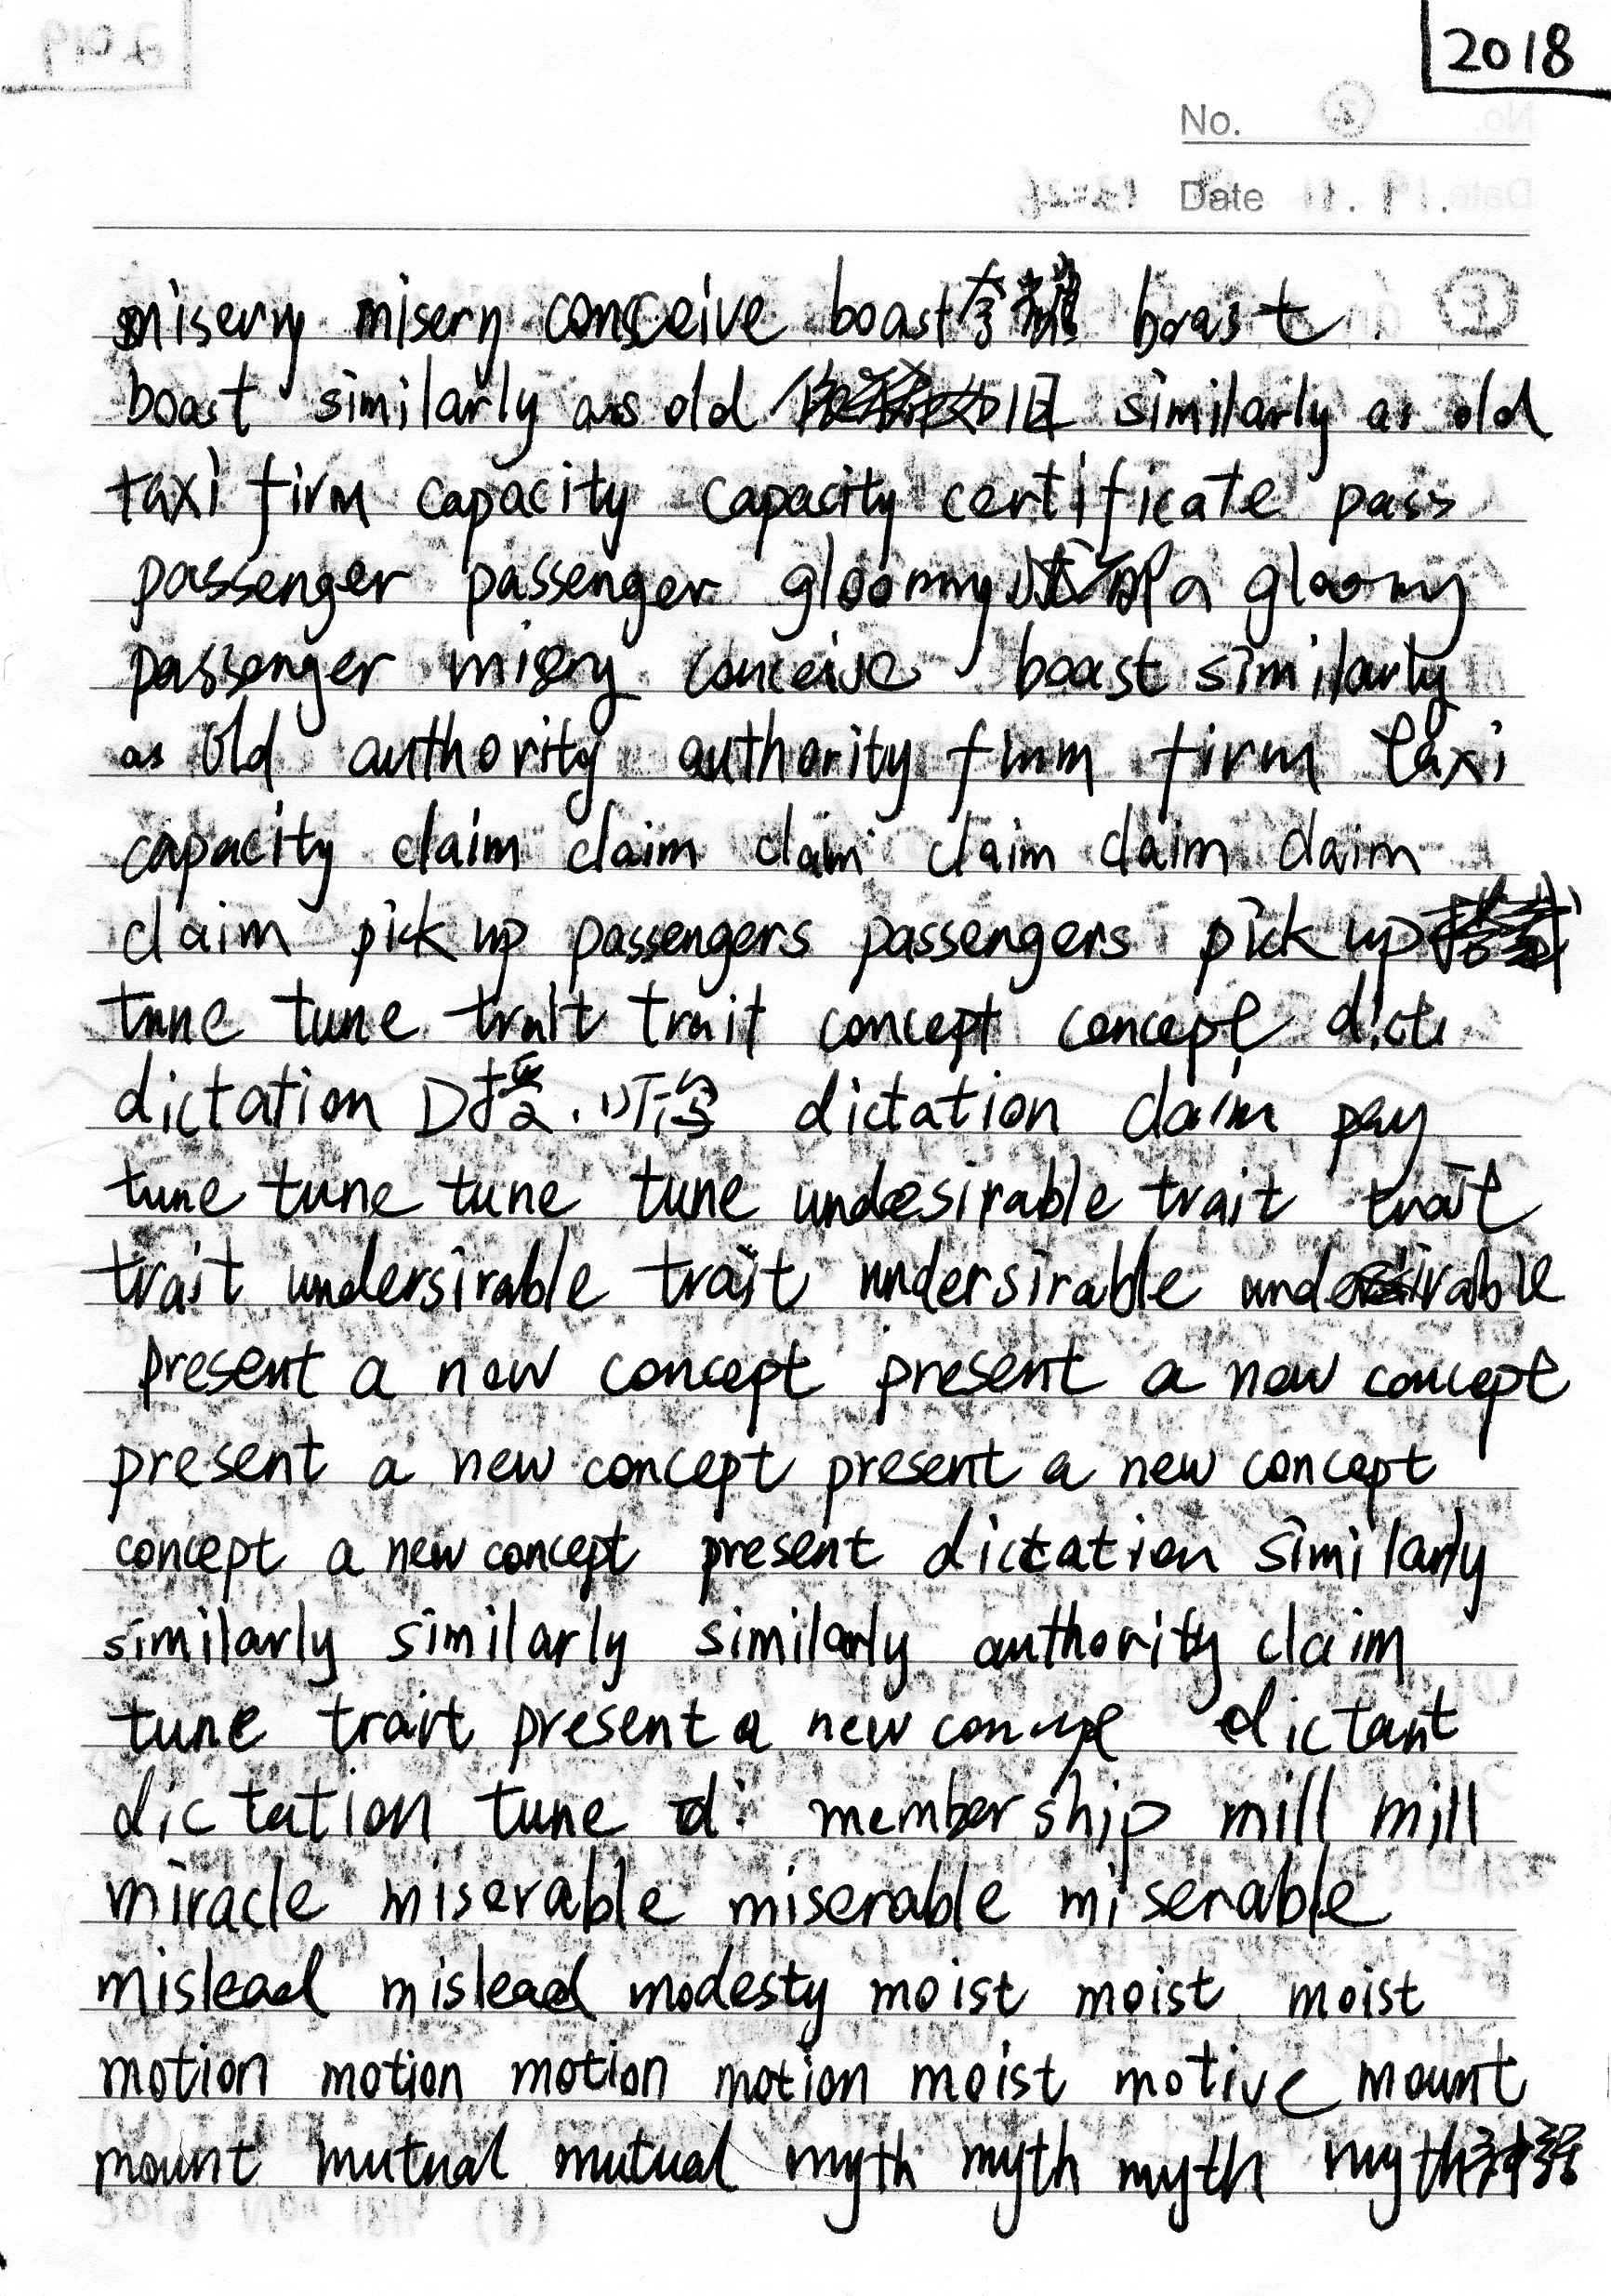 2018
No.
Date
misery misery conceive boast 夸耀 boast
boast similarly as old 旧 similarly as old
taxi firm capacity capacity certificate pass
passenger passenger gloomy gloomy
passenger misery conceive boast similarly
as old authority authority firm firm taxi
capacity claim claim claim claim claim claim
claim pick up passengers passengers pick up
tune tune trait trait concept concept dicti
dictation 口授 听写 dictation claim pay
tune tune tune tune undesirable trait trait
trait undersirable trait undersirable
present a new concept present a new concept
present a new concept present a new concept
concept a new concept present dictation similarly
similarly similarly similarly authority claim
tune trait present a new dictant
dictation tune di membership mill mill
miracle miserable miserable miserable
mislead mislead modesty moist moist moist
motion motion motion motion moist motive mount
mount mutual mutual myth myth myth myth 神话